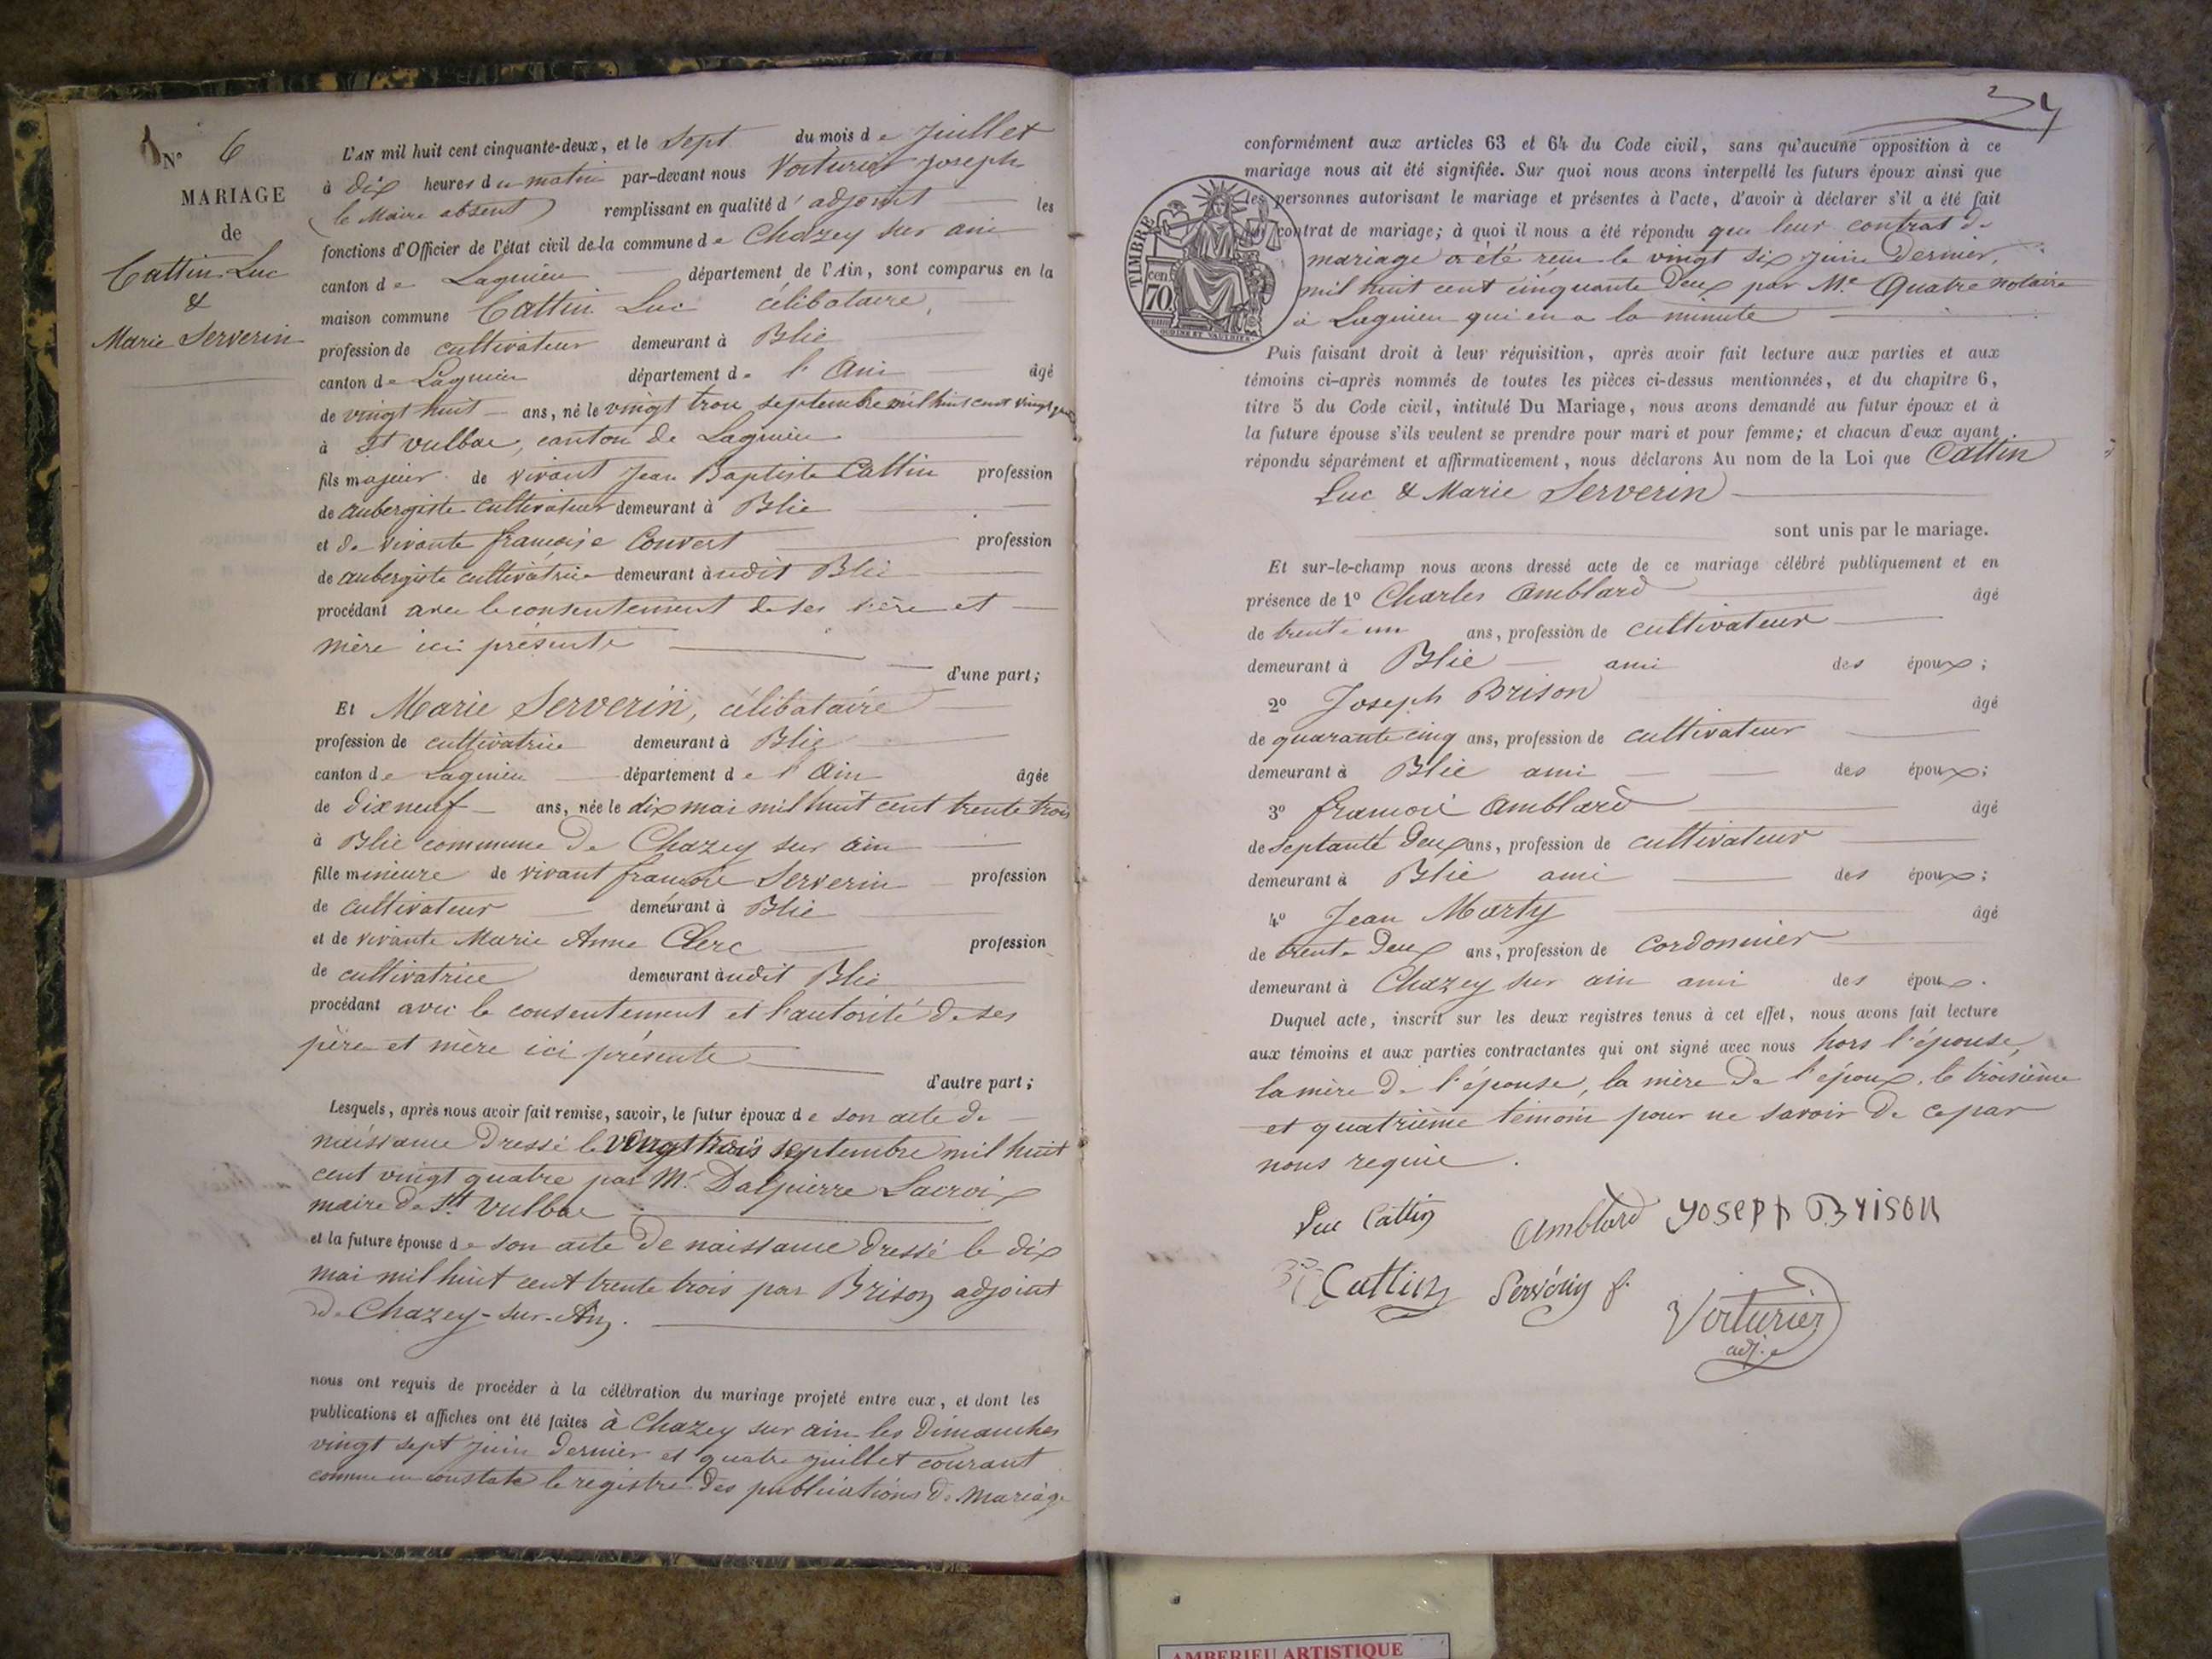 N° 6
MARIAGE
de
Cattin Luc
&
Marie Serverin
L'AN mil huit cent cinquante-deux, et le Sept du mois de Juillet
à dix heures du matin par-devant nous Voiturier Joseph
(le Maire absent) remplissant en qualité d'adjoint les
fonctions d'Officier de l'état civil de la commune de Chazey sur ain
canton de Lagnieu département de l'Ain, sont comparus en la
maison commune Cattin Luc célibataire,
profession de cultivateur demeurant à Blie
canton de Lagnieu département de l'Ain âgé
de vingt huit ans, né le vingt trois septembre mil huit cent vingt
à St vulbae, canton de Lagnieu
fils majeur de vivant Jean Baptiste Cattin profession
de aubergiste cultivateur demeurant à Blie
et de vivante françoise Convert profession
de aubergiste cultivatrice demeurant audit Blie
procédant avec le consentement de ses père et
mère ici présents
d'une part;
Et Marie Serverin, célibataire
profession de cultivatrice demeurant à Blie
canton de Lagnieu département de l'Ain âgée
de dixneuf ans, née le dix mai mil huit cent trente trois
à Blie commune de Chazey sur ain
fille mineure de vivant françois Serverin profession
de cultivateur demeurant à Blie
et de vivante Marie Anne Clerc profession
de cultivatrice demeurant audit Blie
procédant avec le consentement et l'autorité de ses
père et mère ici présents
d'autre part;
Lesquels, après nous avoir fait remise, savoir, le futur époux de son acte de
naissance dressé le vingt trois septembre mil huit
cent vingt quatre par Mr Dalpierre Lacroix
maire de St. Vulbae
et la future épouse de son acte de naissance dressé le dix
mai mil huit cent trente trois par Brison adjoint
de Chazey-sur-Ain.
nous ont requis de procéder à la célébration du mariage projeté entre eux, et dont les
publications et affiches ont été faites à Chazey sur ain les dimanches
vingt sept juin dernier et quatre juillet courant
comme en constate le registre des publications de Mariage
conformément aux articles 63 et 64 du Code civil, sans qu'aucune opposition à ce
mariage nous ait été signifiée. Sur quoi nous avons interpellé les futurs époux ainsi que
les personnes autorisant le mariage et présentes à l'acte, d'avoir à déclarer s'il a été fait
contrat de mariage; à quoi il nous a été répondu que leur contrat de
mariage a été reçu le vingt six juin dernier,
mil huit cent cinquante deux par Me Quatre notaire
à Lagnieu qui en a la minute
TIMBRE
cen
70
Puis faisant droit à leur réquisition, après avoir fait lecture aux parties et aux
témoins ci-après nommés de toutes les pièces ci-dessus mentionnées, et du chapitre 6,
titre 5 du Code civil, intitulé Du Mariage, nous avons demandé au futur époux et à
la future épouse s'ils veulent se prendre pour mari et pour femme; et chacun d'eux ayant
répondu séparément et affirmativement, nous déclarons Au nom de la Loi que Cattin
Luc & Marie Serverin
sont unis par le mariage.
Et sur-le-champ nous avons dressé acte de ce mariage célébré publiquement et en
présence de 1° Charles Amblard âgé
de trente un ans, profession de cultivateur
demeurant à Blie ami des époux;
2° Joseph Brison âgé
de quarante cinq ans, profession de cultivateur
demeurant à Blie ami des époux;
3° françois Amblard âgé
de septante deux ans, profession de cultivateur
demeurant à Blie ami des époux;
4° Jean Marty âgé
de trente deux ans, profession de cordonnier
demeurant à Chazey sur ain ami des époux.
Duquel acte, inscrit sur les deux registres tenus à cet effet, nous avons fait lecture
aux témoins et aux parties contractantes qui ont signé avec nous hors l'épouse,
la mère de l'épouse, la mère de l'époux, le troisième
et quatrième témoin pour ne savoir de ce par
nous requis.
Luc Cattin Amblard Joseph Brison
Cattin Serverin f.
Voiturier
adj.
AMBERIEU ARTISTIQUE